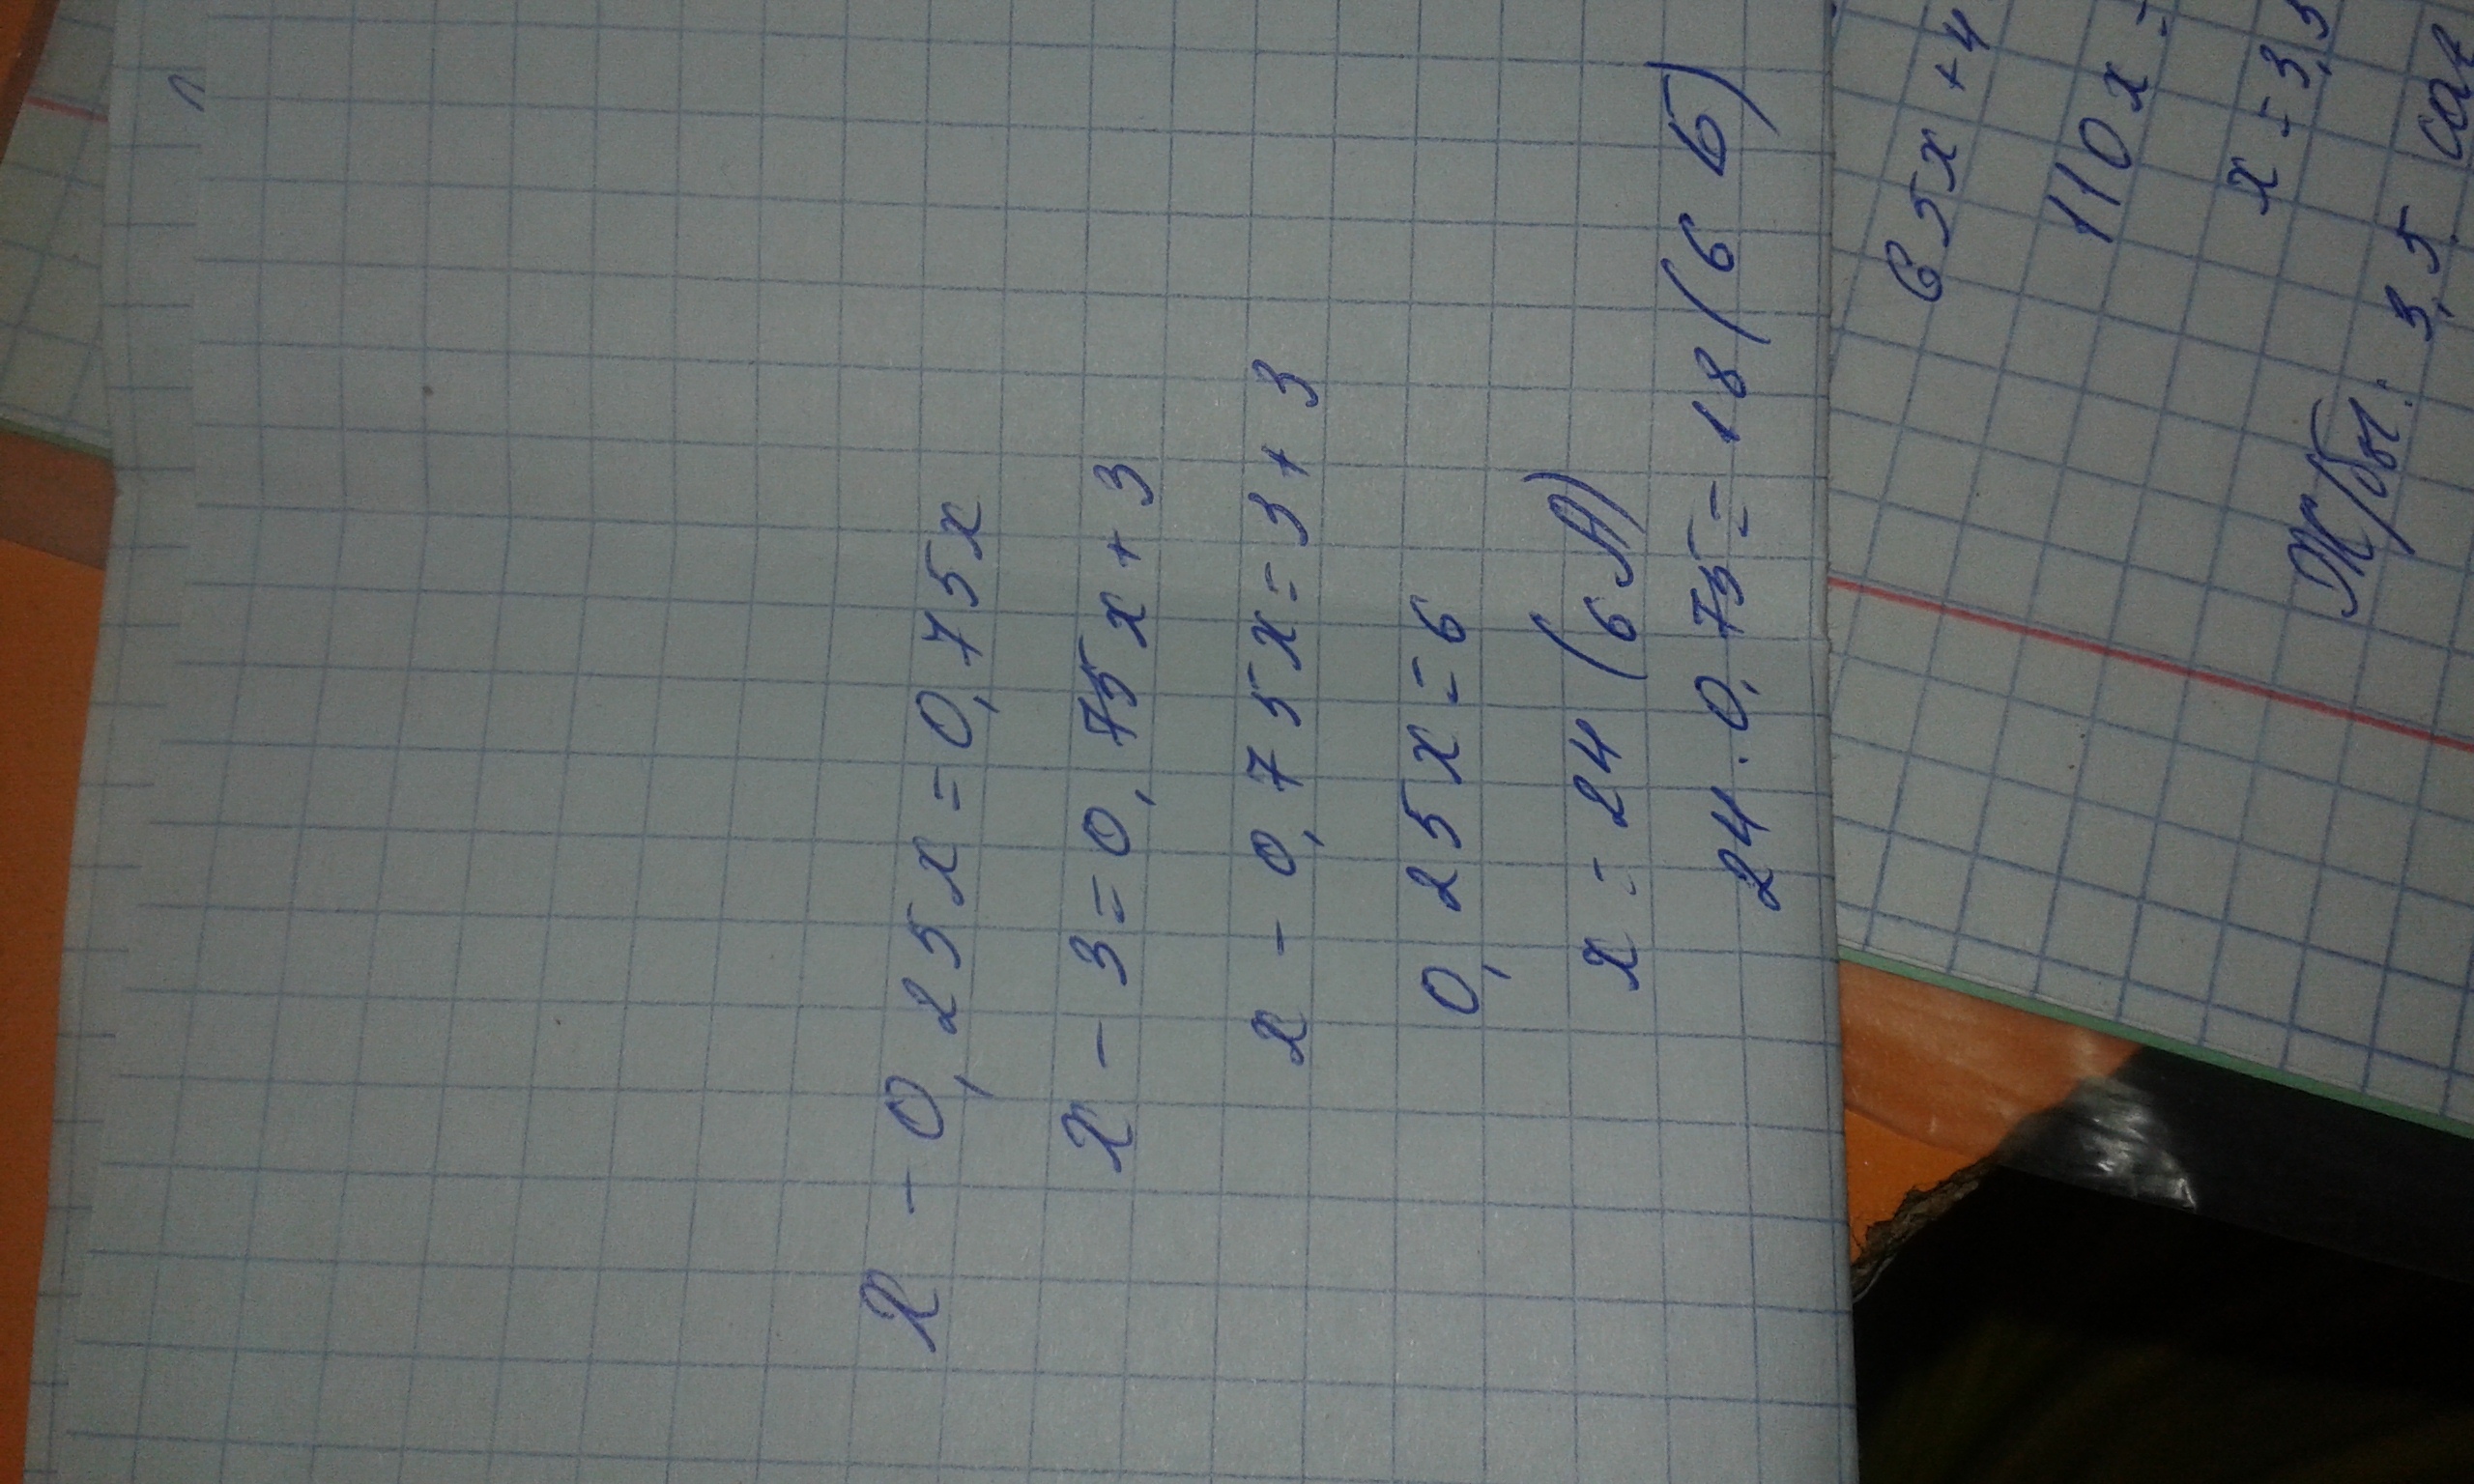 x - 0,25x = 0,75x
x - 3 = 0,75x + 3
x - 0,75x = 3 + 3
0,25x = 6
x = 24 (6 А)
24 · 0,75 = 18 (6 Б)
65x + 4
110x =
x = 3,5
Ж/бы: 3,5 сағ